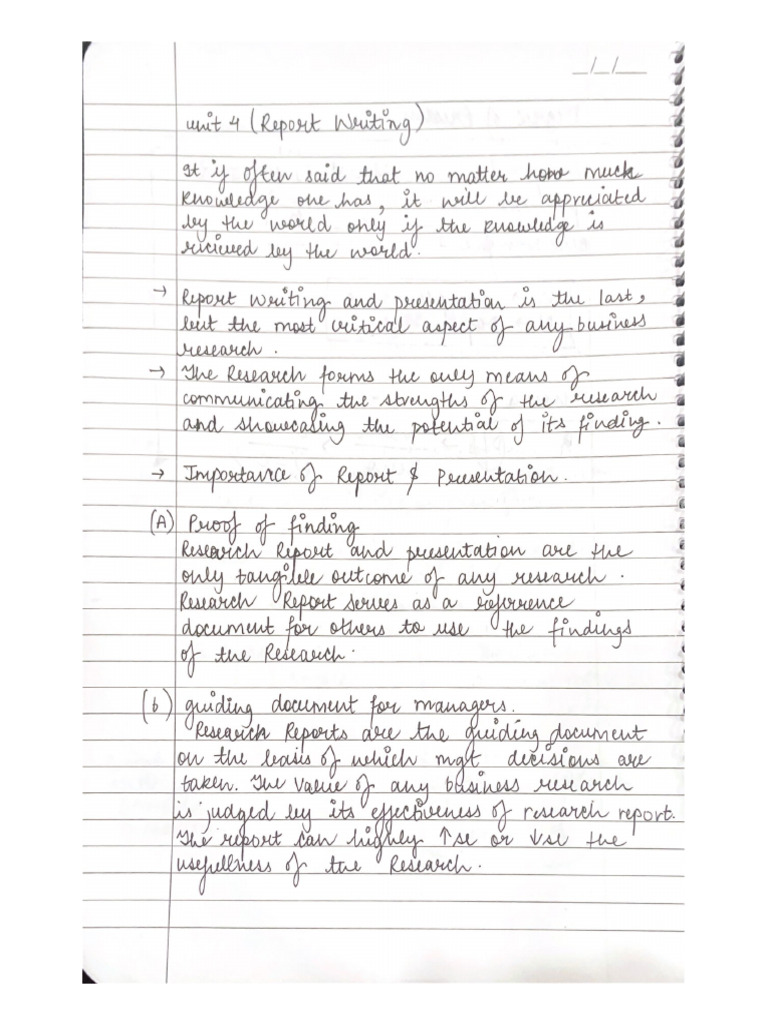 _/_/__
unit 4 (Report Writing)
It is often said that no matter how much
knowledge one has, it will be appriciated
by the world only if the knowledge is
ricieved by the world.
→ Report writing and presentation is the last,
but the most critical aspect of any business
research.
→ The Research forms the only means of
communicating the strengths of the research
and showcasing the potential of its finding.
→ Importance of Report & Presentation.
(A) Proof of finding
Research Report and presentation are the
only tangible outcome of any research.
Research Report serves as a referrence
document for others to use the findings
of the Research.
(b) guiding document for managers.
Research Reports are the guiding document
on the basis of which mgt decisions are
taken. The value of any business research
is judged by its effectiveness of research report.
The report can highly ↑se or ↓se the
usefullness of the Research.